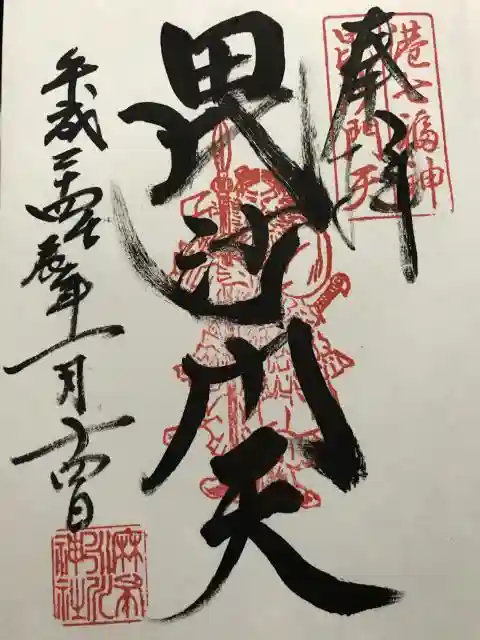 奉拝
港七福神
毘沙門天
毘沙门天
平成二十四壬辰年一月十四日
麻布
氷川
神社